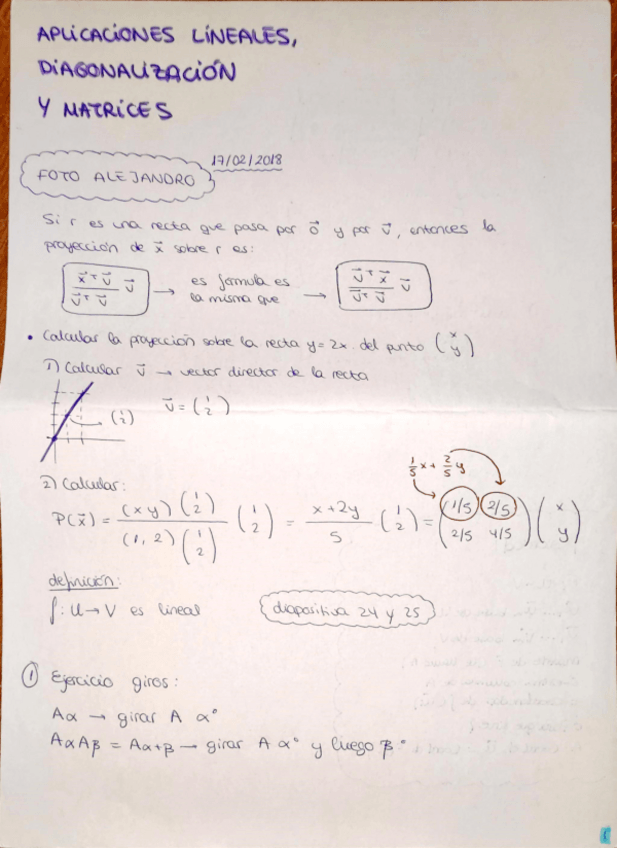 APLICACIONES LINEALES,
DIAGONALIZACIÓN
Y MATRICES
17/02/2018
FOTO ALEJANDRO
Si r es una recta que pasa por 0⃗ y por v⃗, entonces la
proyección de x⃗ sobre r es:
(x⃗ᵀ v⃗ / v⃗ᵀ v⃗) v⃗ → es formula es la misma que → (v⃗ᵀ x⃗ / v⃗ᵀ v⃗) v⃗
• Calcular la proyección sobre la recta y=2x del punto (x y)
1) Calcular v⃗ → vector director de la recta
(1 2) v⃗ = (1 2)
1/5 x + 2/5 y
2) Calcular:
P(x⃗) = ((x y) (1 2) / (1, 2) (1 2)) (1 2) = (x+2y / 5) (1 2) = (1/5 2/5 2/5 4/5) (x y)
definición:
f: U → V es lineal diapositiva 24 y 25
① Ejercicio giros:
Aα → girar A α°
AαAβ = Aα+β → girar A α° y luego β°